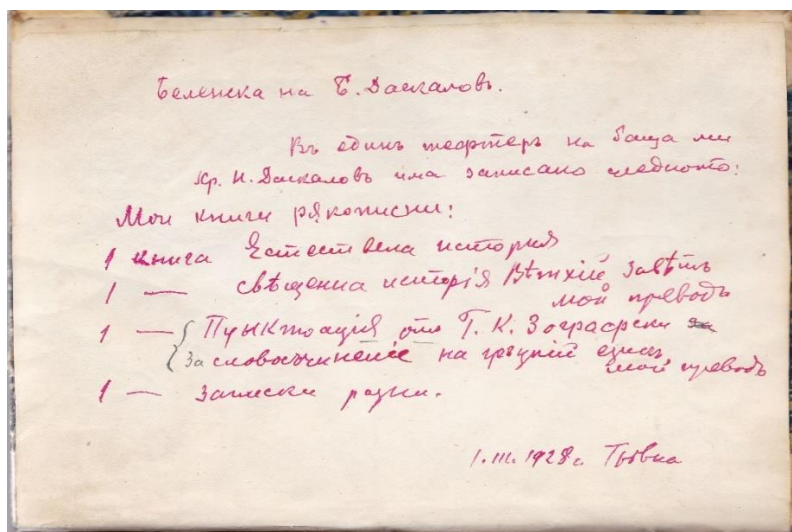 Беленска на Б. Даскаловъ.
Въ единъ тефтеръ на баща ми
Кр. Н. Даскаловъ има записано следното:
Мои книги рѫкописни:
1 книга Естествена история
1 — свѣщенна исторія Вѣтхій Завѣтъ
мой преводъ
1 — Пунктоація отъ Г. К. Зографски
За словосъчиненіе на гръцкій езикъ,
мой преводъ
1 — Записки разни.
1.III.1928 г. Трѣвна